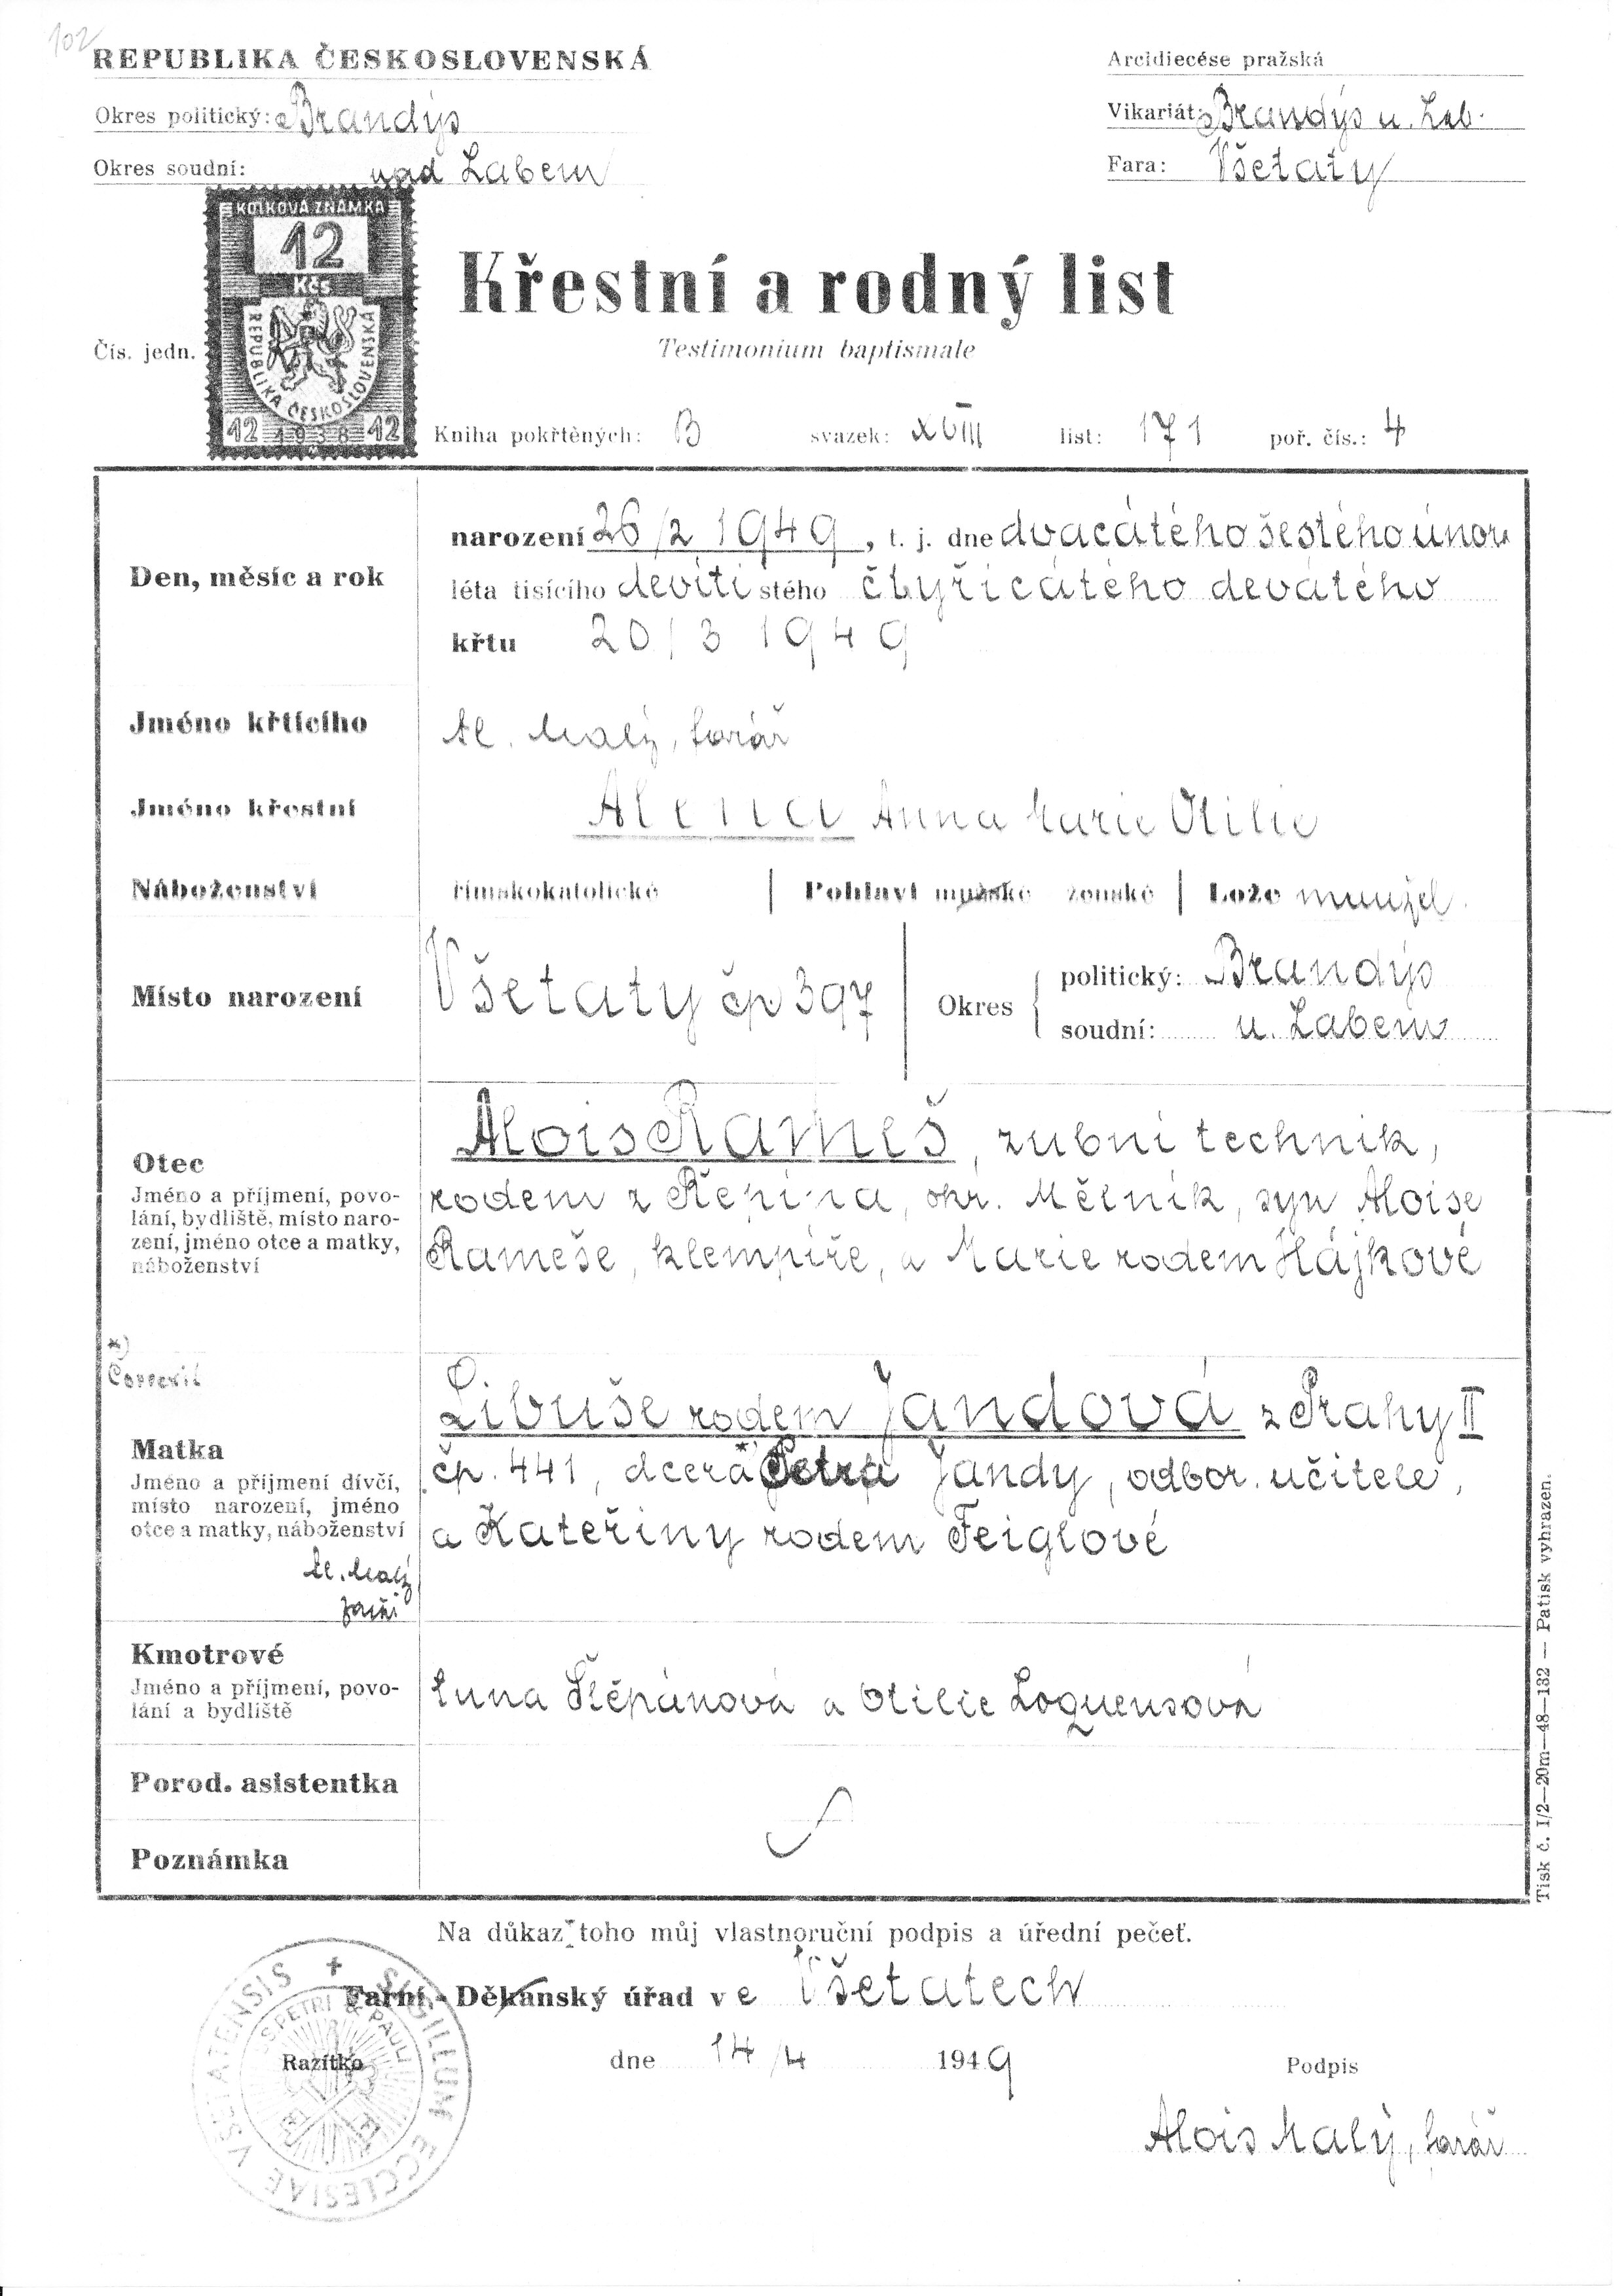 102
REPUBLIKA ČESKOSLOVENSKÁ
Okres politický: Brandýs
Okres soudní: nad Labem
Arcidiecése pražská
Vikariát: Brandýs n. Lab.
Fara: Všetaty
KOLKOVÁ ZNÁMKA
12
Kčs
REPUBLIKA ČESKOSLOVENSKÁ
12 1938 12
Čís. jedn.
Křestní a rodný list
Testimonium baptismale
Kniha pokřtěných: B svazek: XVIII list: 171 poř. čís.: 4
Den, měsíc a rok
narození 26/2 1949, t. j. dne dvacátého šestého února
léta tisícího devíti stého čtyřicátého devátého
křtu 20/3 1949
Jméno křtícího Al. Malý, farář
Jméno křestní Alena Anna Marie Otilie
Náboženství římskokatolické Pohlaví mužské ženské Lože manžel.
Místo narození Všetaty čp 397 Okres politický: Brandýs
soudní: n. Labem
Otec
Jméno a příjmení, povo-
lání, bydliště, místo naro-
zení, jméno otce a matky,
náboženství
Alois Rameš, zubní technik,
rodem z Řepína, okr. Mělník, syn Aloise
Rameše, klempíře, a Marie rodem Hájkové
*)
Correxit
Matka
Jméno a příjmení dívčí,
místo narození, jméno
otce a matky, náboženství
Al. Malý
farář
Libuše rodem Jandová z Prahy II
čp. 441, dcera * Petra Jandy, odbor. učitele,
a Kateřiny rodem Feiglové
Kmotrové
Jméno a příjmení, povo-
lání a bydliště
Anna Štěpánová a Otilie Loquensová
Porod. asistentka
Poznámka
Tisk č. I/2—20m—48—132 — Patisk vyhrazen.
Na důkaz toho můj vlastnoruční podpis a úřední pečeť.
Farní - Děkanský úřad ve Všetatech
Razítko
dne 14/4 1949
Podpis
Alois Malý, farář
SIGILLUM ECCLESIAE VŠETATENSIS
S PETRI & PAULI